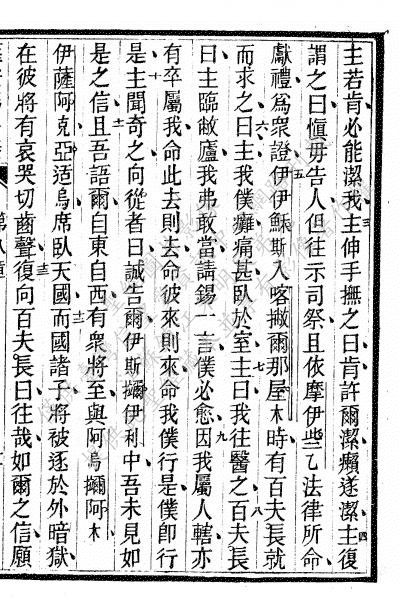 主若肯必能潔我主伸手撫之曰肯許爾潔癩遂潔主復
謂之曰愼毋告人但往示司祭且依摩伊些乙法律所命
獻禮爲衆證伊伊穌斯入喀撇爾那屋木時有百夫長就
而求之曰主我僕癱痛甚臥於室主曰我往醫之百夫長
曰主臨敝廬我弗敢當請錫一言僕必愈因我屬人轄亦
有卒屬我命此去則去命彼來則來命我僕行是僕卽行
是主聞奇之向從者曰誠告爾伊斯攦伊利中吾未見如
是之信且吾語爾自東自西有衆將至與阿烏攦阿木
伊薩阿克亞适烏席臥天國而國諸子將被逐於外暗獄
在彼將有哀哭切齒聲復向百夫長曰往哉如爾之信願